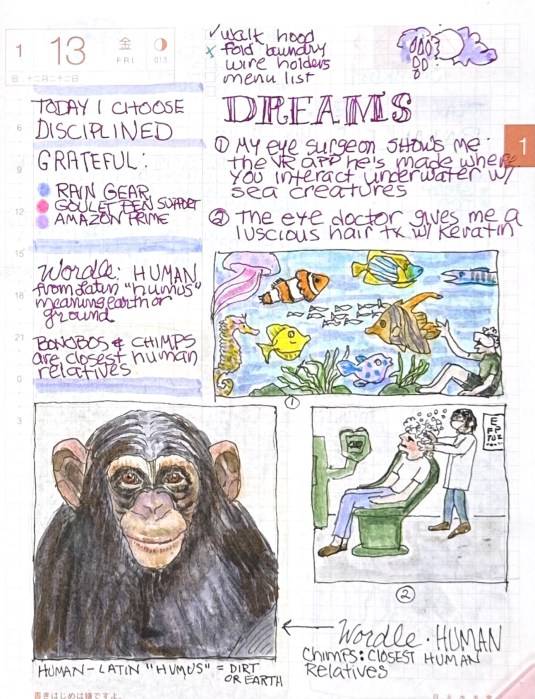 1 13 金 FRI 013
日 十二月二十二日
✓ walk hood
x fold laundry
wire holders
menu list
TODAY I CHOOSE
DISCIPLINED
GRATEFUL:
RAIN GEAR
GOULET PEN SUPPORT
AMAZON PRIME
Wordle: HUMAN
from Latin "humus"
meaning earth or
ground
BONOBOS & CHIMPS
are closest human
relatives
6
9
12
15
18
21
0
3
DREAMS
① My eye surgeon shows me
the VR app he's made where
you interact underwater w/
sea creatures
② The eye doctor gives me a
luscious hair tx w/ Keratin
1
①
E
②
Wordle · HUMAN
Chimps: Closest Human
Relatives
HUMAN - LATIN "HUMUS" = DIRT
OR EARTH
書きはじめは嫌ですよ。